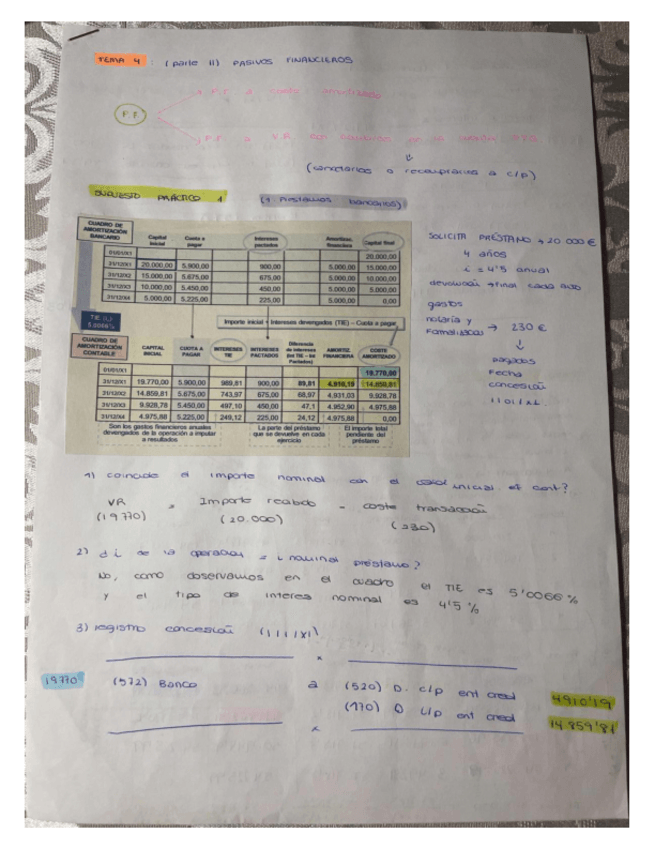 TEMA 4 : (parte II) PASIVOS FINANCIEROS
P.F. a coste amortizado
P.F.
P.F. a V.R. con cambios en la cuenta PYG
(cancelarlos o recomprarlos a c/p)
SUPUESTO PRÁCTICO 1 (1. Préstamos bancarios)
CUADRO DE AMORTIZACIÓN BANCARIO Capital inicial Cuota a pagar Intereses pactados Amortizac. financiera Capital final
01/01/X1 20.000,00
31/12/X1 20.000,00 5.900,00 900,00 5.000,00 15.000,00
31/12/X2 15.000,00 5.675,00 675,00 5.000,00 10.000,00
31/12/X3 10.000,00 5.450,00 450,00 5.000,00 5.000,00
31/12/X4 5.000,00 5.225,00 225,00 5.000,00 0,00
TIE
5,0066%
Importe inicial + Intereses devengados (TIE) – Cuota a pagar
CUADRO DE AMORTIZACIÓN CONTABLE CAPITAL INICIAL CUOTA A PAGAR INTERESES TIE INTERESES PACTADOS Diferencia de intereses (Int TIE – Int Pactados) AMORTIZ. FINANCIERA COSTE AMORTIZADO
01/01/X1 19.770,00
31/12/X1 19.770,00 5.900,00 989,81 900,00 89,81 4.910,19 14.859,81
31/12/X2 14.859,81 5.675,00 743,97 675,00 68,97 4.931,03 9.928,78
31/12/X3 9.928,78 5.450,00 497,10 450,00 47,1 4.952,90 4.975,88
31/12/X4 4.975,88 5.225,00 249,12 225,00 24,12 4.975,88 0,00
Son los gastos financieros anuales devengados de la operación a imputar a resultados
La parte del préstamo que se devuelve en cada ejercicio
El importe total pendiente del préstamo
SOLICITA PRÉSTAMO → 20 000 €
4 años
i = 4'5 anual
devolución → final cada año
gastos
notaría y
formalizac → 230 €
pagados
fecha
concesión
1/01/X1
1) coincide el importe nominal con el inicial cont?
VR = Importe recibido - coste transacción
(19 770) (20.000) (230)
2) d i de la operación = i nominal préstamo?
No, como observamos en el cuadro el TIE es 5'0066 %
y el tipo de interes nominal es 4'5 %
3) registro concesión (1/1/X1)
x
19.770 (572) Banco a (520) D. c/p ent cred 4910'19
(170) D L/p ent cred 14.859'81
x